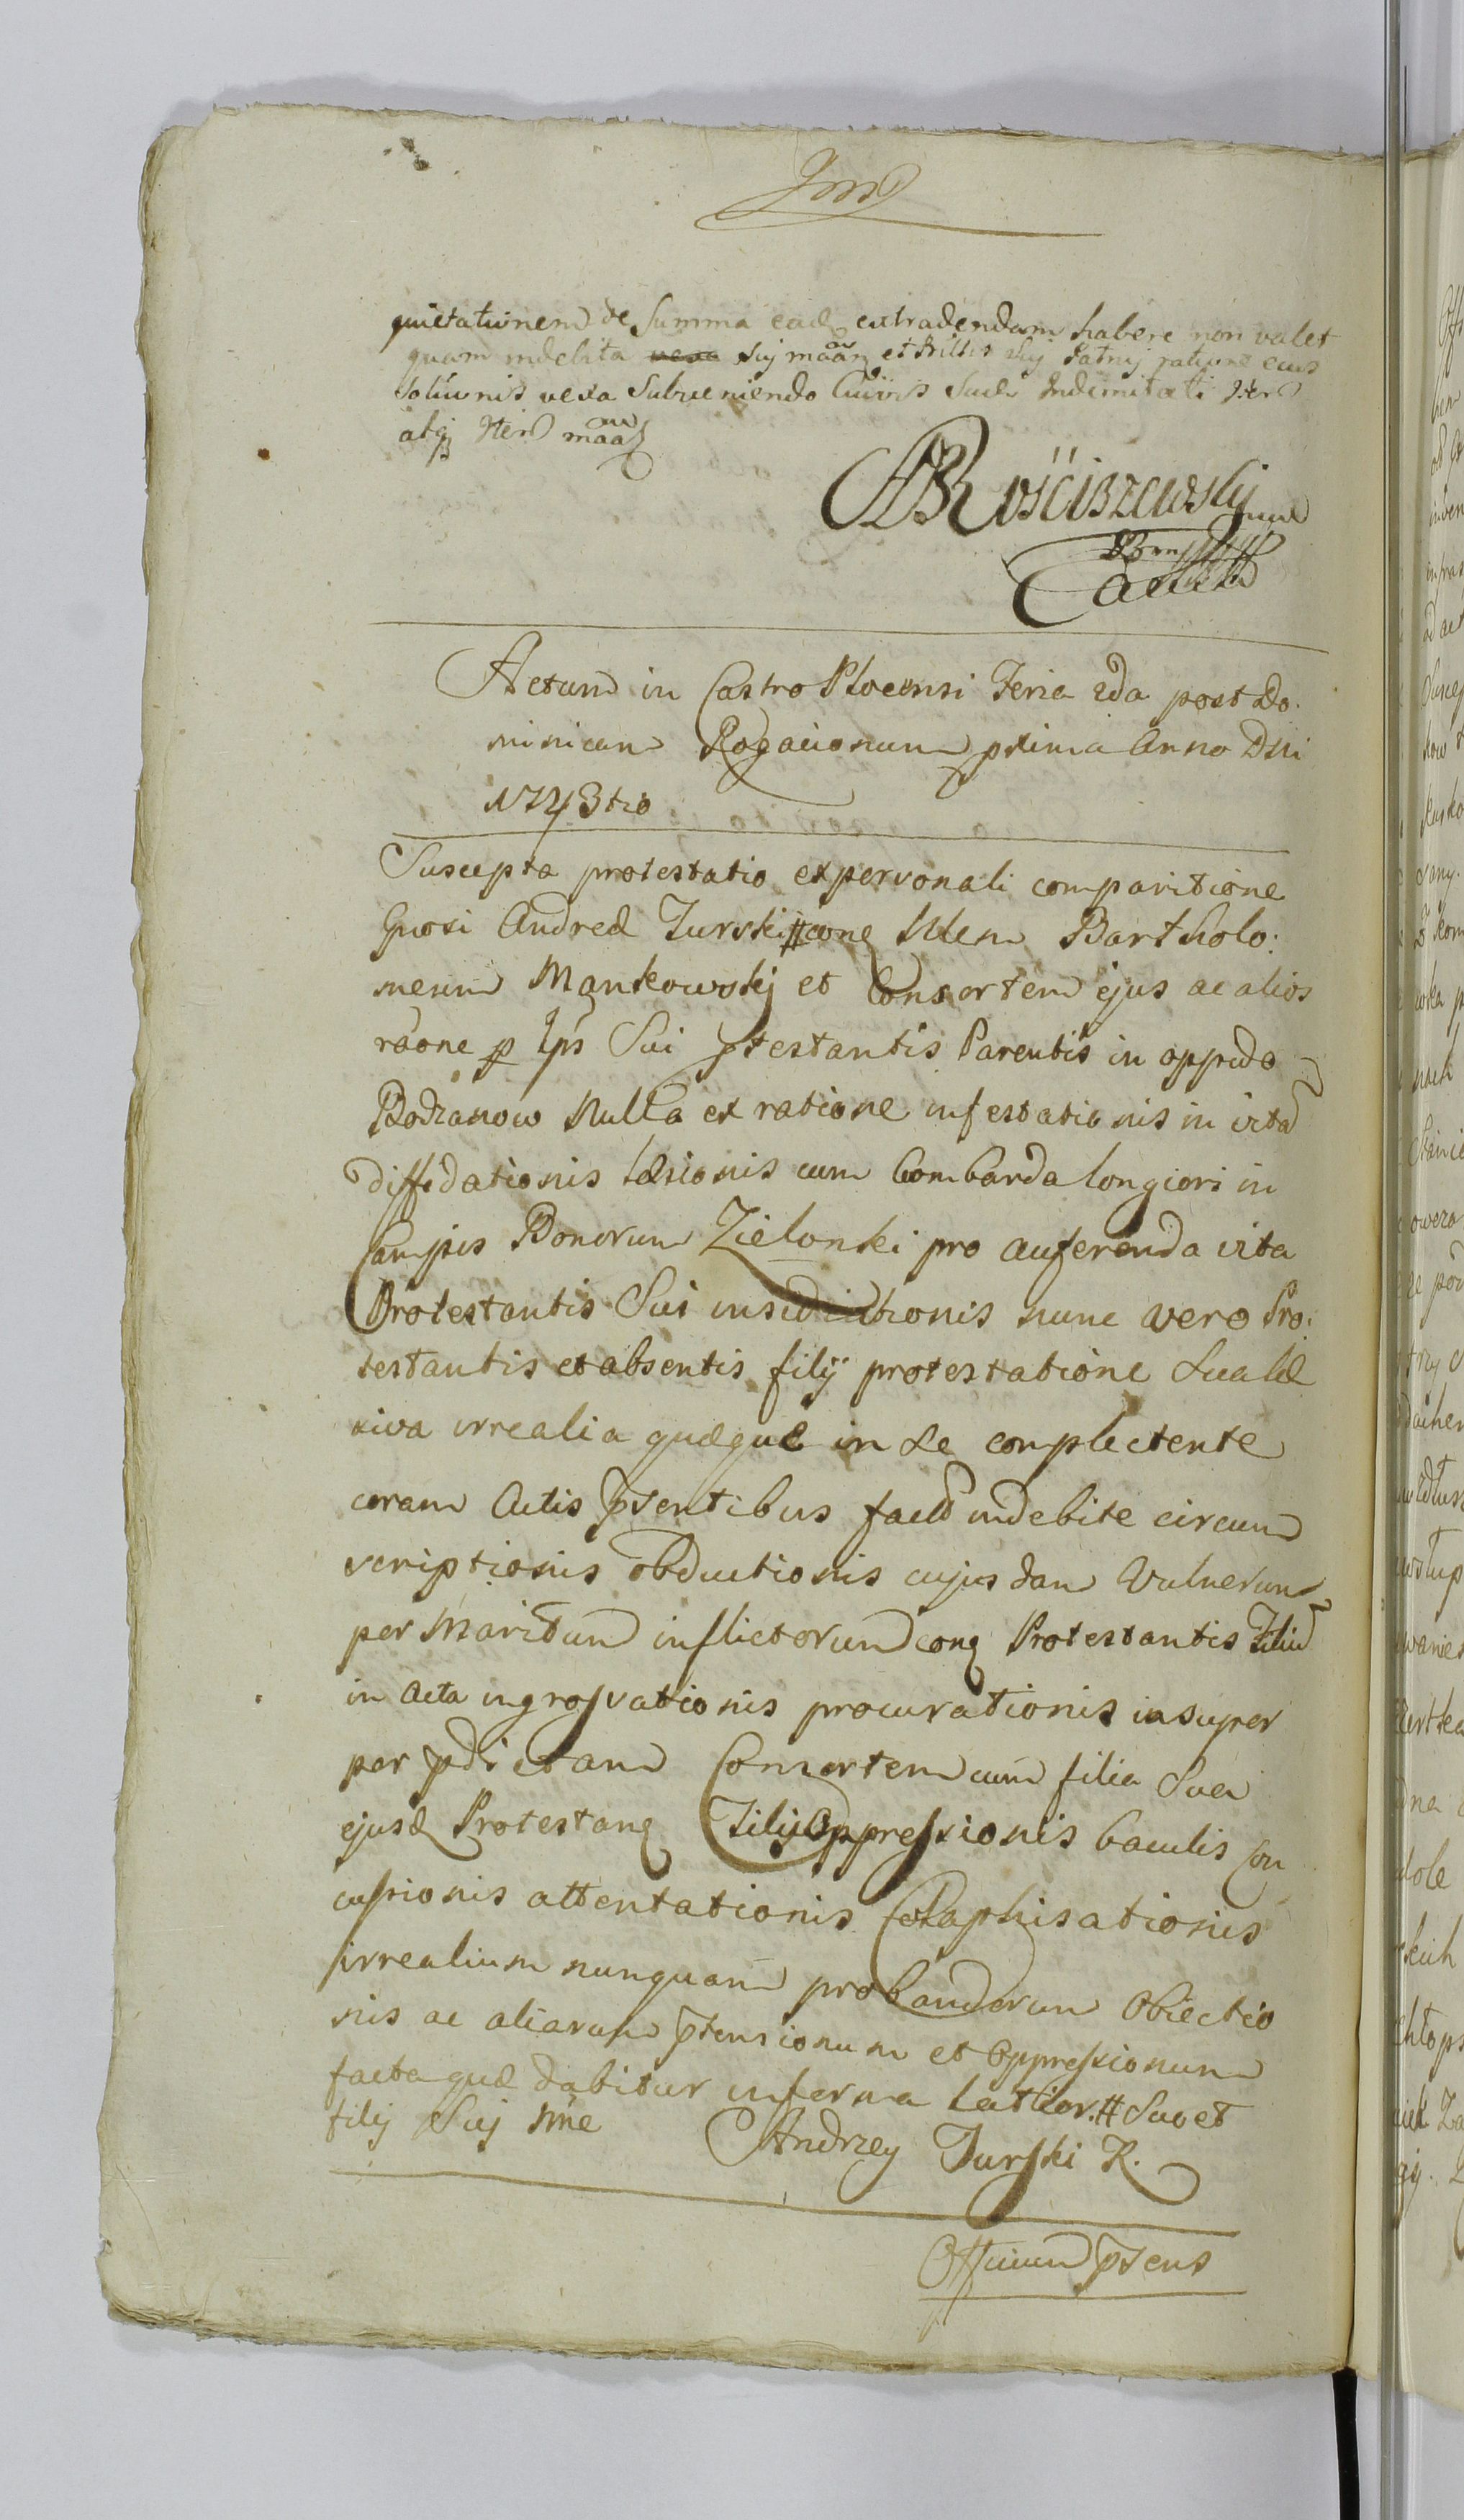 quietationem de Summa ead extradendam habere non valet
quam indebita suj maan et suj Patruj ratione ejus
Solũnis vexa Subveniendo Suae Indemnitati Iter
atq Iter maa
Rościszewskj mp
Actum in Castro Plocensi Feria 2da post Do.
minicam Rogacionum prima Anno Dni
1743tio
Suscepta protestatio ex personali comparitione
Gnosi Andreæ Turski # cone Nlem Bartholo:
meum Mankowskj et Consortem ejus ac alios
raone p Ips Sui ptestantis Parentis in oppido
Bodzanow Nulla ex ratione infestationis in vita
diffidationis læsionis cum bombarda longiori in
Campis Bonorum Zielonki pro auferenda vita
Protestantis Sui insidiationis nunc vero Pro:
testantis et absentis filij protestatione Sua læ
siva irrealia quæque in se complectente
coram Actis pstentibus facta indebite circum
scriptionis obductionis cujusdam Vulnerum
per Maritum inflictorum conq Protestantis Filiũ
in Acta ingrossationis procurationis insuper
per pdictam Consortem cum filia Sua
ejusd Protestanq Filij Oppressionis baculis con
cussionis attentationis Colaphisationis
irrealium nunquam probandorum Obiectio
nis ac aliarum ptensionum et Oppressionum
facta quæ dabitur in forma latior. # Suo et
filij Suj nne Andrzey Turski R.
Officium psens